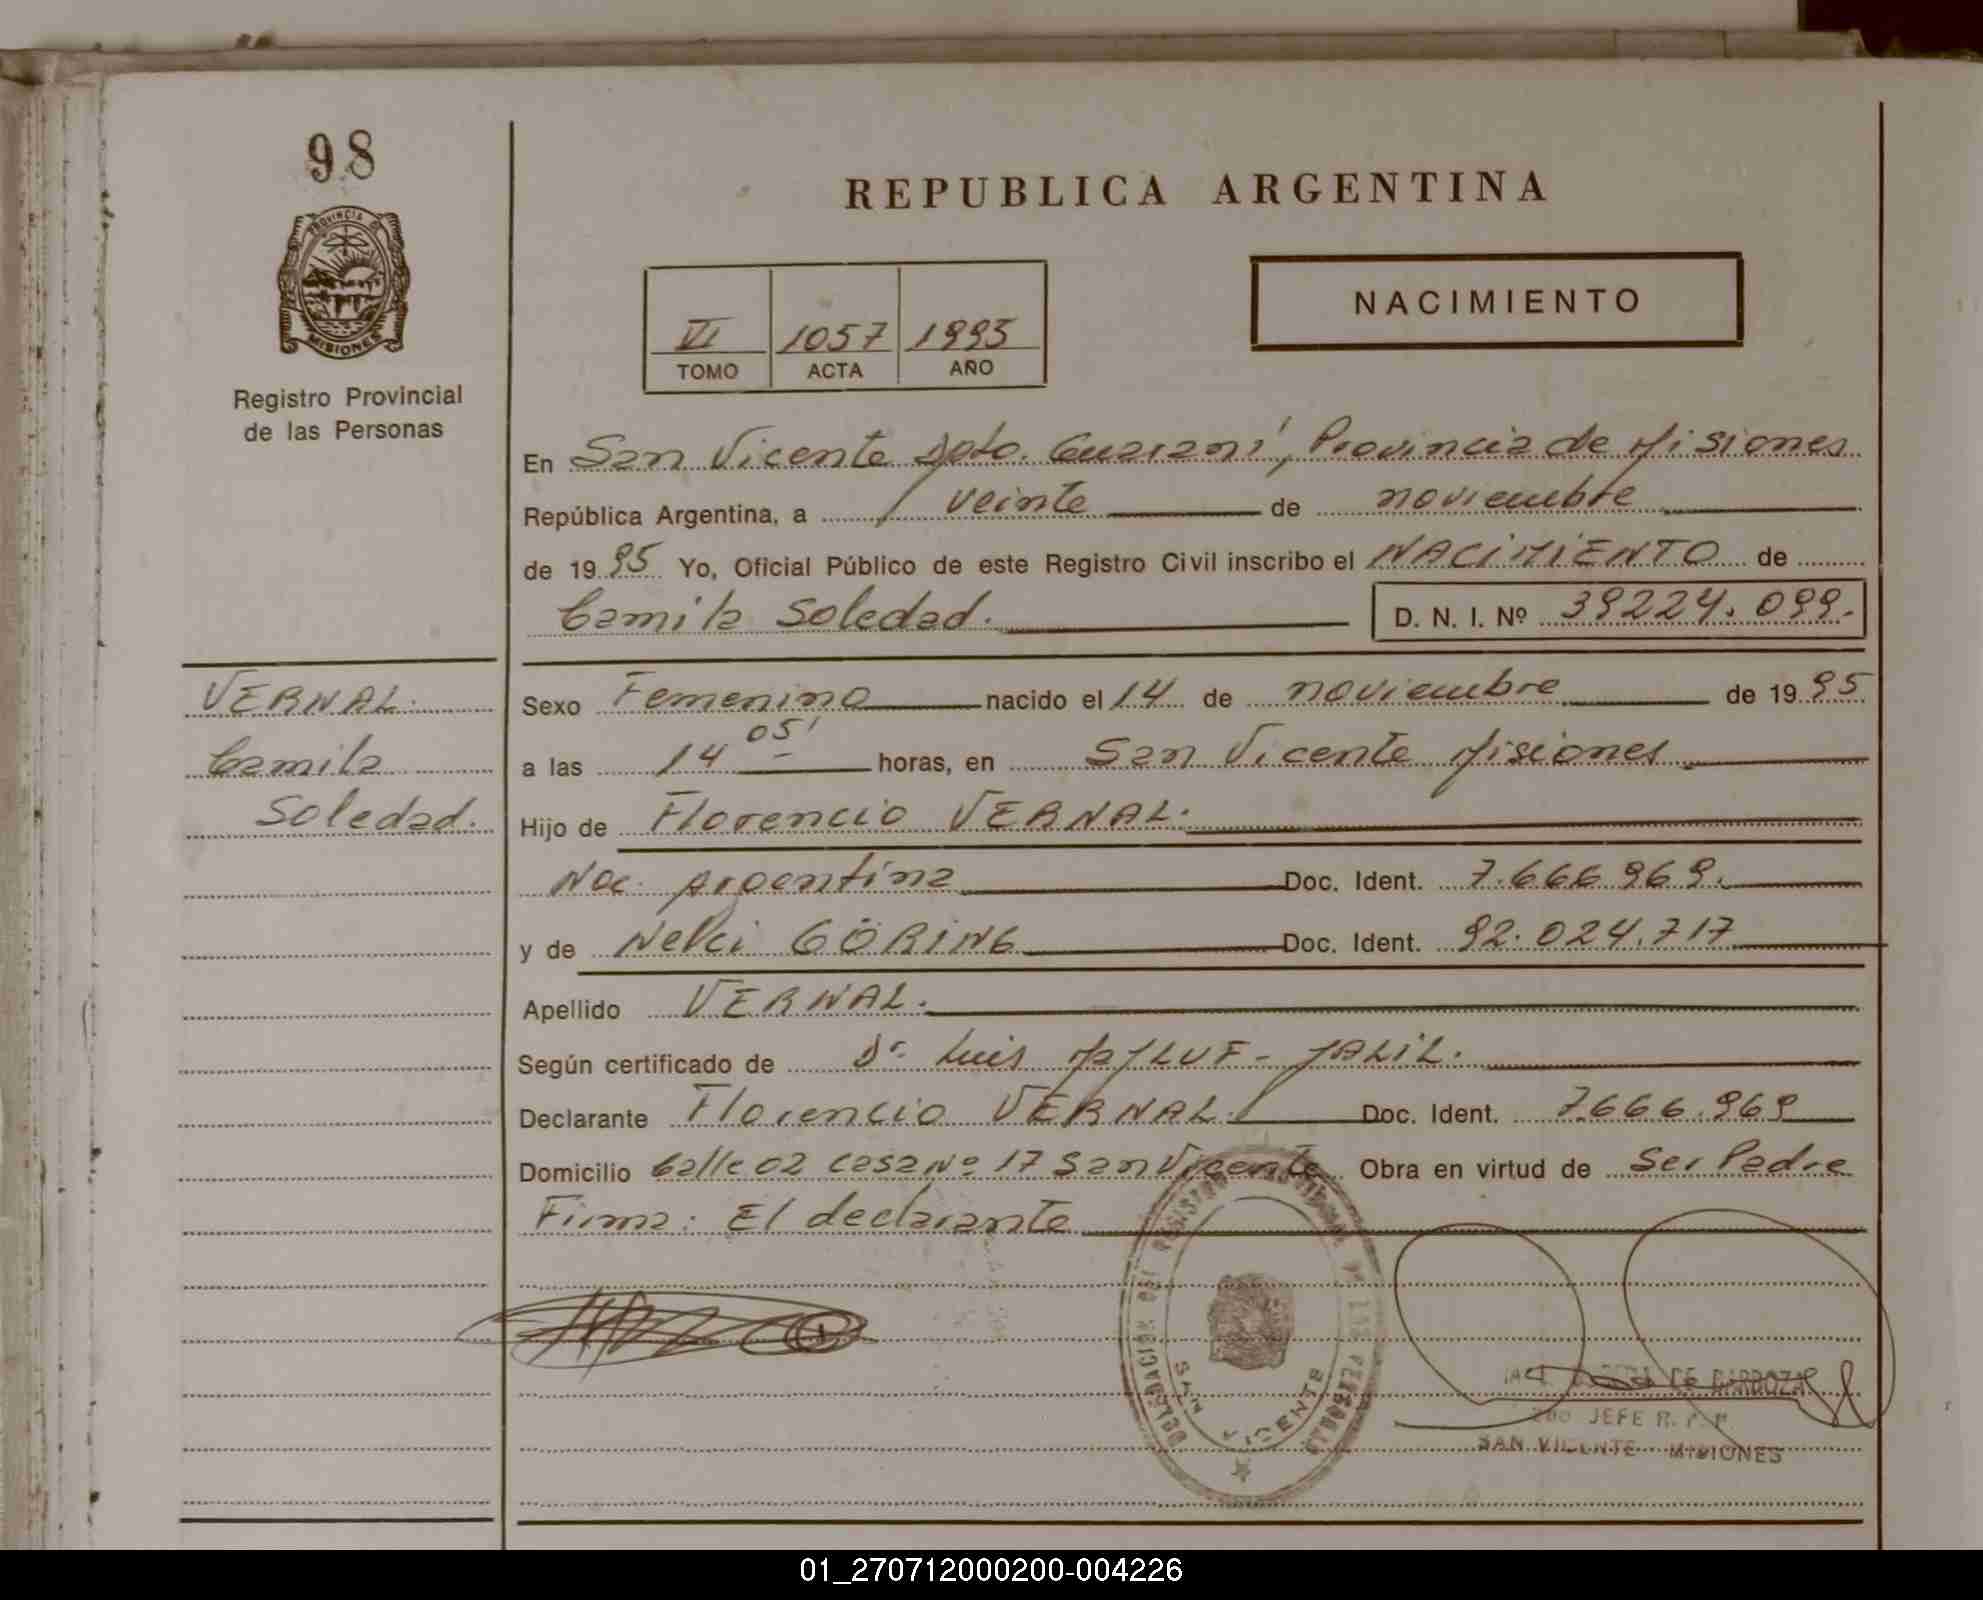 98
PROVINCIA DE
MISIONES
Registro Provincial
de las Personas
REPUBLICA ARGENTINA
NACIMIENTO
VI 1057 1995
TOMO ACTA AÑO
En San Vicente Dpto. Guaraní, Provincia de Misiones
República Argentina, a veinte de noviembre
de 1995 Yo, Oficial Público de este Registro Civil inscribo el NACIMIENTO de
Camila Soledad. D. N. I. Nº 39224.099.
VERNAL.
Camila
Soledad.
Sexo Femenino nacido el 14 de noviembre de 1995
a las 14 05' horas, en San Vicente Misiones
Hijo de Florencio VERNAL.
Nac. Argentina Doc. Ident. 7.666.969.
y de Nelci GÖRING Doc. Ident. 92.024.717
Apellido VERNAL.
Según certificado de Dr. Luis JALIL.
Declarante Florencio VERNAL. Doc. Ident. 7.666.969
Domicilio Calle 02 casa Nº 17 San Vicente Obra en virtud de Ser Padre
Firma: El declarante
DELEGACION DEL REGISTRO PROVINCIAL DE LAS PERSONAS
SAN VICENTE
DE BARBOZA
2do JEFE R. P. P.
SAN VICENTE - MISIONES
01_270712000200-004226